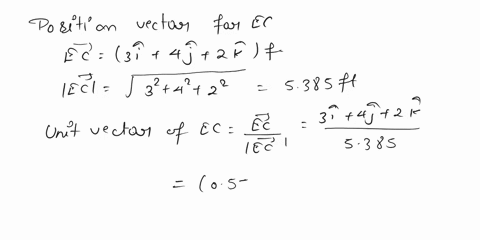 Position vector for EC
\vec{EC} = (3\hat{i} + 4\hat{j} + 2\hat{k}) f
|\vec{EC}| = \sqrt{3^2+4^2+2^2} = 5.385 ft
Unit vector of EC = \frac{\vec{EC}}{|\vec{EC}|} = \frac{3\hat{i}+4\hat{j}+2\hat{k}}{5.385}
= (0.5-